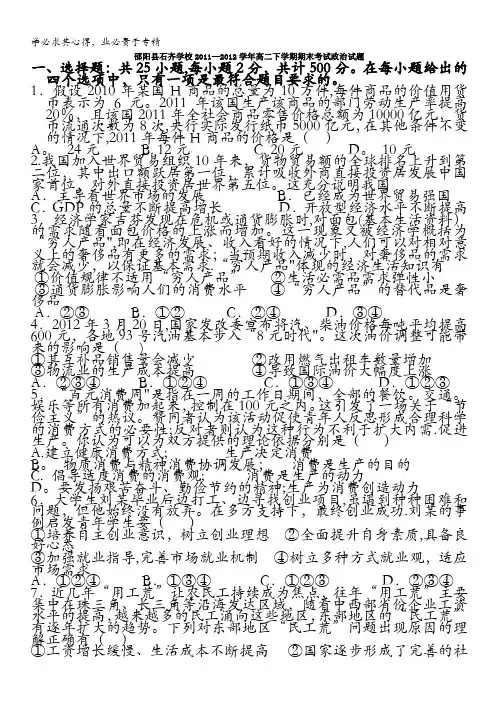 学必求其心得,业必贵于专精
邵阳县石齐学校2011—2012学年高二下学期期末考试政治试题
一、选择题:共25小题,每小题2分,共计500分。在每小题给出的
四个选项中,只有一项是最符合题目要求的。
1.假设2010年某国H商品的总量为10万件,每件商品的价值用货
币表示为6元。2011年该国生产该商品的部门劳动生产率提高
20%,且该国2011年全社会商品零售价格总额为10000亿元,货
币流通次数为8次,央行实际发行纸币5000亿元,在其他条件不变
的情况下,2011年每件H商品的价格是( )
A。 24元 B.12元 C.20元 D。10元
2.我国加入世界贸易组织10年来,货物贸易额的全球排名上升到第
二位,其中出口额跃居第一位,累计吸收外商直接投资居发展中国
家首位,对外直接投资居世界第五位。这充分说明我国
A.主导着世界市场的发展 B.已经成为世界贸易强国
C.GDP的总量不断提高增长 D.开放型经济水平不断提高
3.经济学家吉芬发现在危机或通货膨胀时,对面包(基本生活资料)
的需求随着面包价格的上涨而增加。这一现象又被经济学概括为
"穷人产品",即在经济发展、收入看好的情况下,人们可以对相对意
义上的奢侈品有更多的需求;当预期收入减少时,对奢侈品的需求
就会减少,以保证基本需求。"穷人产品"体现的经济生活知识有
①价值规律不适用"穷人产品" ②生活必需品需求弹性小
③通货膨胀影响人们的消费水平 ④"穷人产品"的替代品是奢
侈品
A.②③ B.①② C.②④ D.③④
4.2012年3月20日,国家发改委宣布将汽、柴油价格每吨平均提高
600元,各地93号汽油基本步入"8元时代"。这次油价调整可能带
来的影响是( )
①其互补品销售量会减少 ②改用燃气出租车数量增加
③物流业的生产成本提高 ④导致国际油价大幅度上涨
A.②③④ B.①②④ C.①③④ D.①②③
5."百元消费周"是指在一周的工作日期间,全部的餐饮。交通。
娱乐等所有消费加起来,控制在100元之内。这引发了一场关于"节
俭主义"的热议。赞同者认为该活动促使青年人反思形成合理科学
的消费方式的必要性;反对者则认为这种行为不利于扩大内需.促进
生产。你认为可以为双方提供的理论依据分别是( )
A.建立健康消费方式; 生产决定消费
B。物质消费与精神消费协调发展; 消费是生产的目的
C.倡导适度消费的消费观; 消费是生产的动力
D.要发扬艰苦奋斗、勤俭节约的精神;生产为消费创造动力
6.大学生刘某毕业后边打工,边寻找创业项目,虽遇到种种困难和
问题,但他始终没有放弃。在多方支持下,最终创业成功.刘某的事
例启发青年学生要( )
①培养自主创业意识,树立创业理想 ②全面提升自身素质,具备良
好心态
③加强就业指导,完善市场就业机制 ④树立多种方式就业观,适应
市场需求
A.①②④ B.①③④ C.①②③ D.②③④
7.近几年"用工荒"让农民工持续成为焦点。往年"用工荒"主要
集中在珠三角、长三角等沿海发达区域,随着中西部省份企业工资
水平的提高,越来越多的民工涌向这些地区,东部地区的"民工荒"
有逐年扩大的趋势。下列对东部地区"民工荒"问题出现原因的理
解正确有( )
①工资增长缓慢、生活成本不断提高 ②国家逐步形成了完善的社